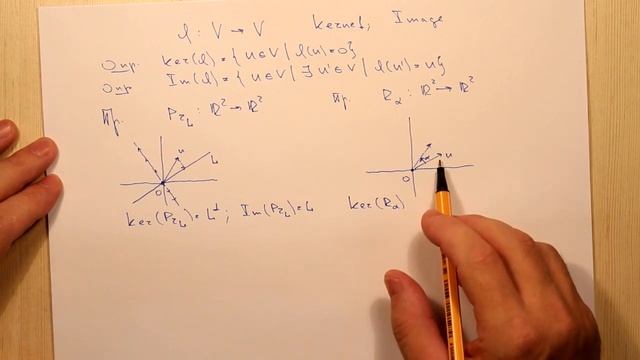 l : V → V kernel; Image
Опр. ker(l) = { u ∈ V | l(u) = 0 }
Опр. Im(l) = { u ∈ V | ∃ u' ∈ V | l(u') = u }
Пр. Pr_L : ℝ² → ℝ² Пр. R_α : ℝ² → ℝ²
u L α u
O O
ker(Pr_L) = L^⊥ ; Im(Pr_L) = L ker(R_α)